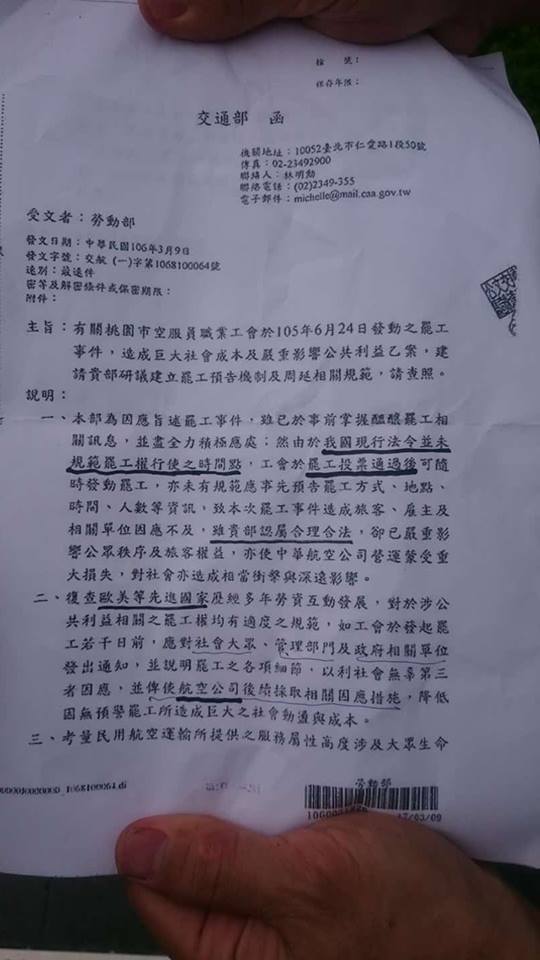 檔　　號：
保存年限：
交通部　函
機關地址：10052臺北市仁愛路1段50號
傳真：02-23492900
聯絡人：林明勳
聯絡電話：(02)2349-355
電子郵件：michelle@mail.caa.gov.tw
受文者：勞動部
發文日期：中華民國106年3月9日
發文字號：交航（一）字第1068100064號
速別：最速件
密等及解密條件或保密期限：
附件：
主旨：有關桃園市空服員職業工會於105年6月24日發動之罷工
事件，造成巨大社會成本及嚴重影響公共利益乙案，建
請貴部研議建立罷工預告機制及周延相關規範，請查照。
說明：
一、本部為因應旨述罷工事件，雖已於事前掌握醞釀罷工相
關訊息，並盡全力積極應處；然由於我國現行法令並未
規範罷工權行使之時間點，工會於罷工投票通過後可隨
時發動罷工，亦未有規範應事先預告罷工方式、地點、
時間、人數等資訊，致本次罷工事件造成旅客、雇主及
相關單位因應不及，雖貴部認屬合理合法，卻已嚴重影
響公眾秩序及旅客權益，亦使中華航空公司營運蒙受重
大損失，對社會亦造成相當衝擊與深遠影響。
二、復查歐美等先進國家歷經多年勞資互動發展，對於涉公
共利益相關之罷工權均有適度之規範，如工會於發起罷
工若干日前，應對社會大眾、管理部門及政府相關單位
發出通知，並說明罷工之各項細節，以利社會無辜第三
者因應，並俾使航空公司後續採取相關因應措施，降低
因無預警罷工所造成巨大之社會動盪與成本。
三、考量民用航空運輸所提供之服務屬性高度涉及大眾生命
勞動部